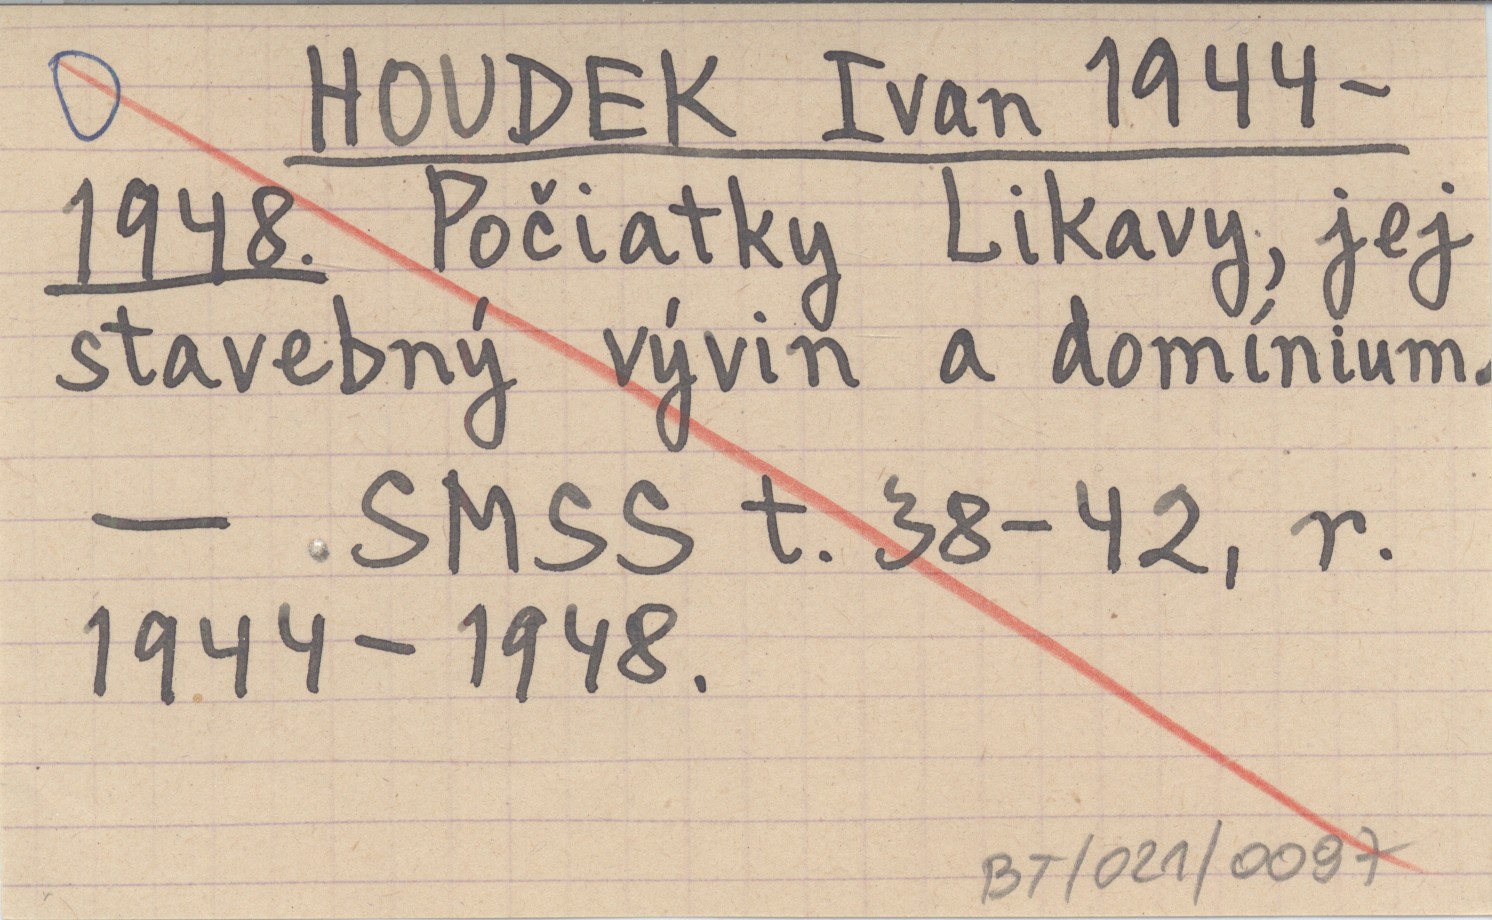 HOUDEK Ivan 1944-
1948. Počiatky Likavy, jej
stavebný vývin a domínium.
— SMSS t. 38-42, r.
1944-1948.
BT/021/0097